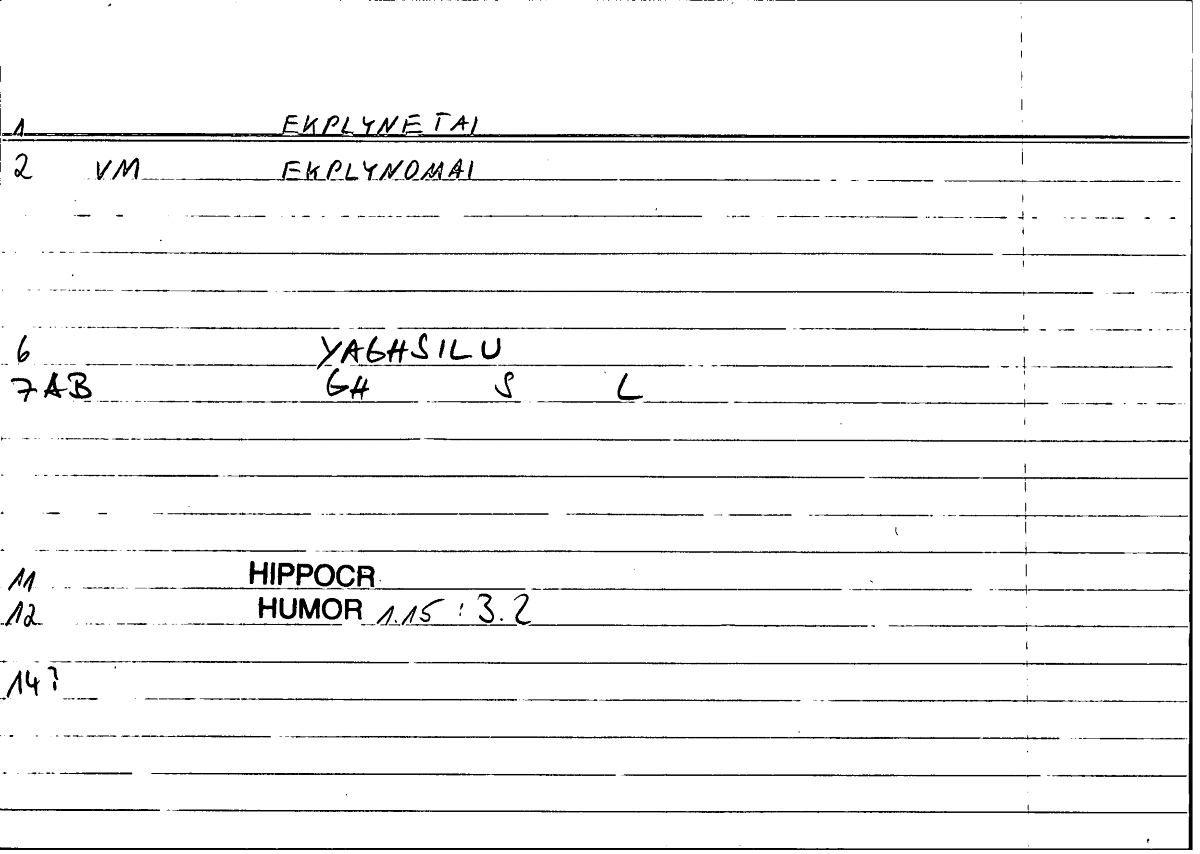 1 EKPLYNETAI
2 VM EKPLYNOMAI
6 YAGHSILU
7AB GH S L
11 HIPPOCR
12 HUMOR 1.15 : 3.2
14?